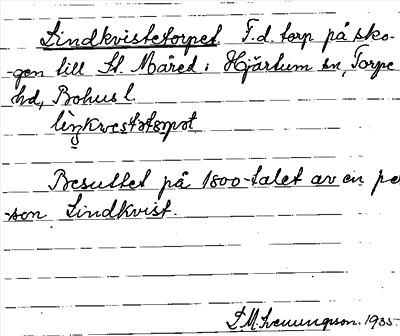 Lindkvistetorpet. F.d. torp på sko-
-gen till St. Märed i Hjärtum sn, Torpe
hd, Bohus l.
Besuttet på 1800-talet av en per
-son Lindkvist.
D. M. Svenungson. 1935.